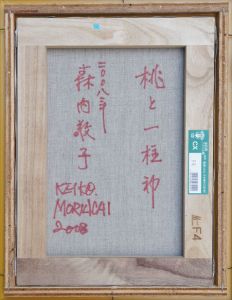 桃と一柱神
二〇〇八年
森内敬子
KEIKO.
MORIUCAI
2008
F4
CK